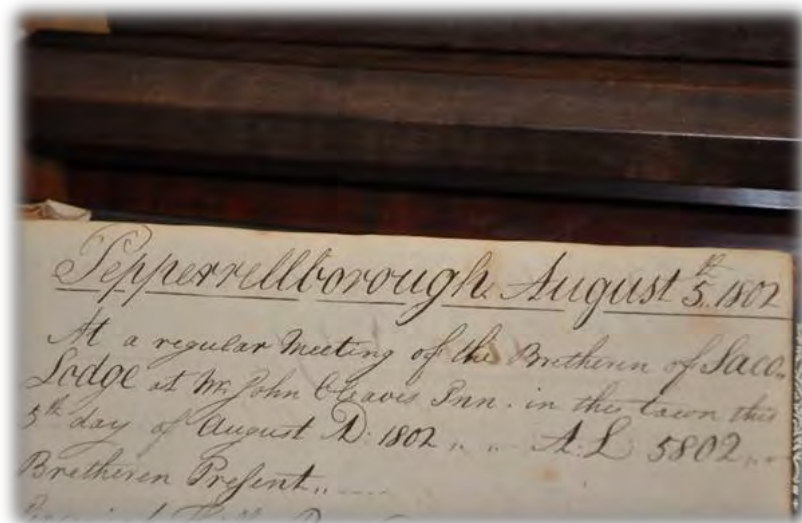 Pepperrellborough August 5th 1802
At a regular Meeting of the Bretheren of Saco
Lodge at Mr John Cleaves Inn. in this town this
5th day of August A.D: 1802 „ „ A:L: 5802 „
Bretheren Present„